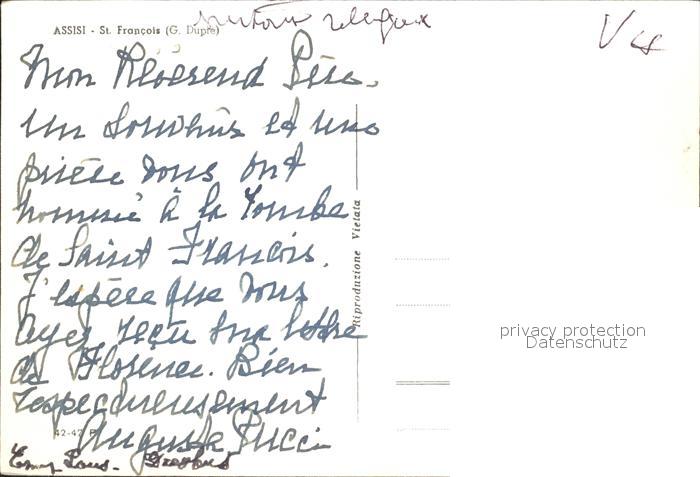 ASSISI - St. François (G. Dupré)
Mon Révérend Père.
un souvenir et une
prière vous ont
nommé à la Tombe
de Saint Francois.
J'espère que vous
ayez reçu ma lettre
de Florence. Bien
respectueusement
Pucci
Riproduzione Vietata
privacy protection
Datenschutz